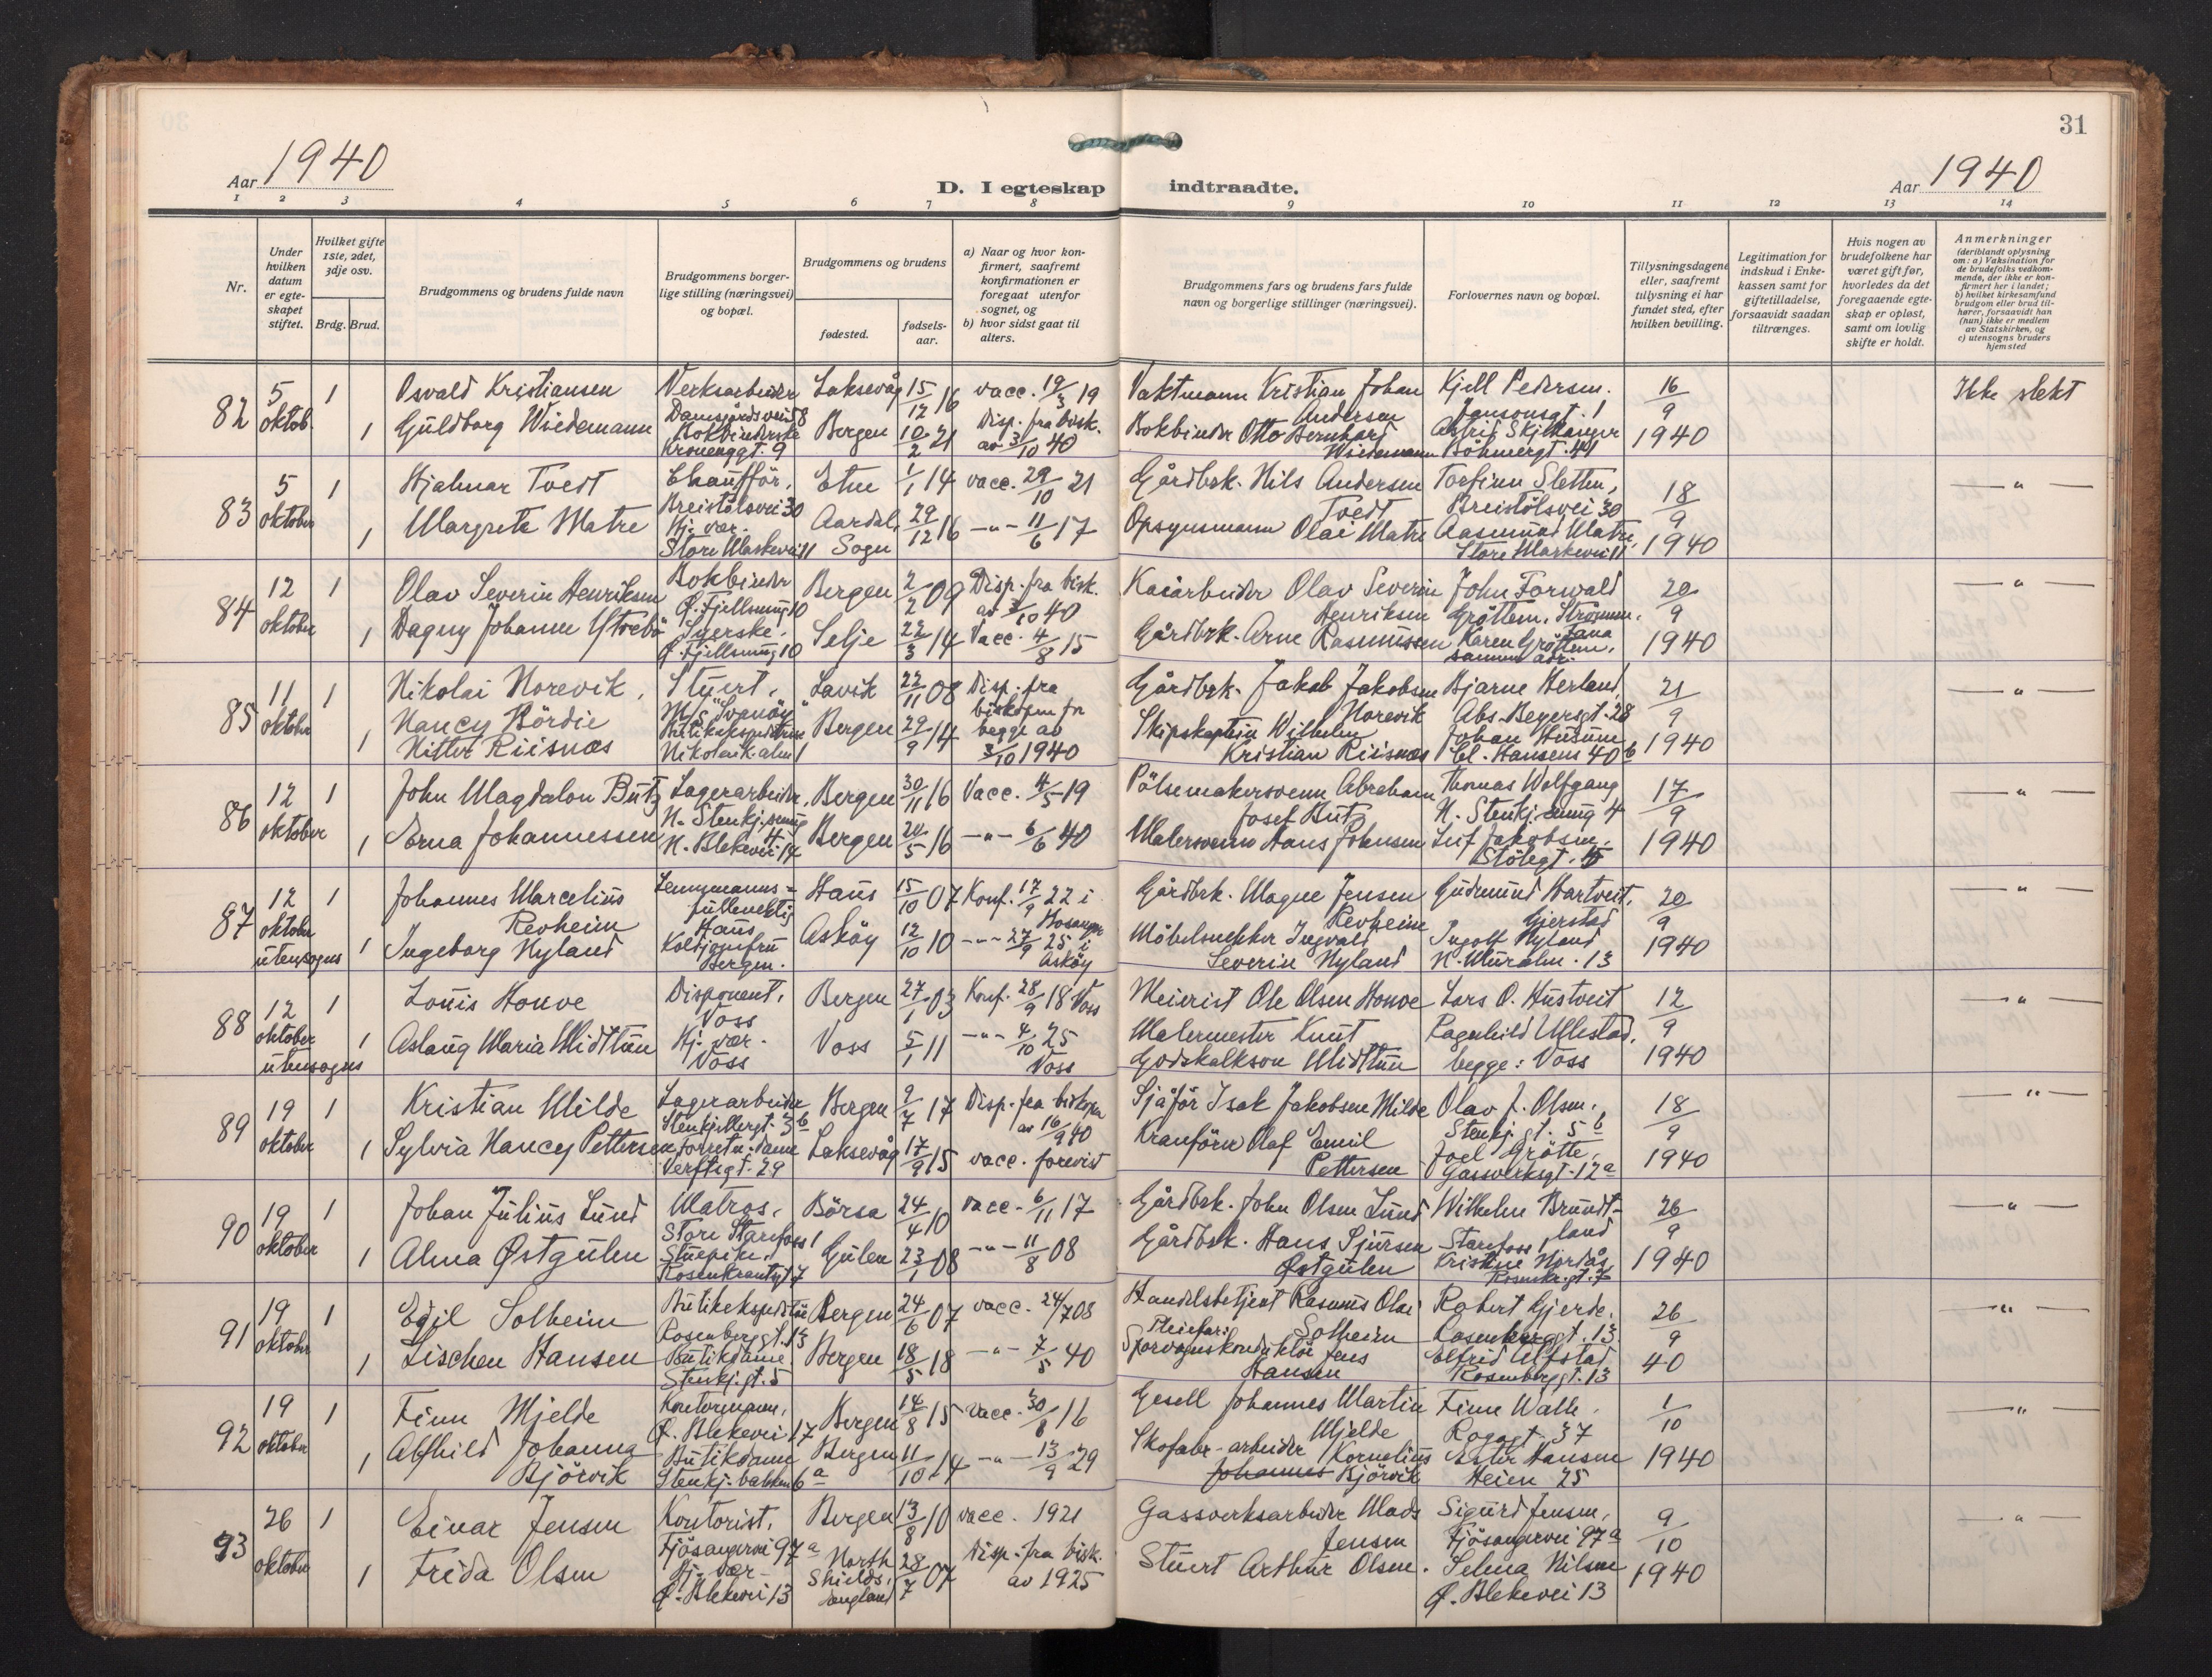 31
Aar 1940
D. I egteskap indtraadte.
Aar 1940
1 2 3 4 5 6 7 8 9 10 11 12 13 14
Nr.
Under hvilken datum er egteskapet stiftet.
Hvilket gifte 1ste, 2det, 3dje osv.
Brdg. Brud.
Brudgommens og brudens fulde navn
Brudgommens borgerlige stilling (næringsvei) og bopæl.
Brudgommens og brudens
fødested.
fødsels-aar.
a) Naar og hvor konfirmert, saafremt konfirmationen er foregaat utenfor sognet, og
b) hvor sidst gaat til alters.
Brudgommens fars og brudens fars fulde navn og borgerlige stillinger (næringsvei).
Forlovernes navn og bopæl.
Tillysningsdagene eller, saafremt tillysning ei har fundet sted, efter hvilken bevilling.
Legitimation for indskud i Enkekassen samt for giftetilladelse, forsaavidt saadan tiltrænges.
Hvis nogen av brudefolkene har været gift før, hvorledes da det foregaaende egteskap er opløst, samt om lovlig skifte er holdt.
Anmerkninger (deriblandt oplysning om: a) Vaksination for de brudefolks vedkommende, der ikke er konfirmert her i landet; b) hvilket kirkesamfund brudgom eller brud tilhører, forsaavidt han (hun) ikke er medlem av Statskirken, og c) utensogns bruders hjemsted
82 5 oktob. 1 Osvald Kristiansen Verksarbeider Damsgårdsveid 8 Laksevåg 15/12 16 vacc. 19/3 19 Vaktmann Kristian Johan Andersen Kjell Pedersen. Jansonsgt. 1 16/9 1940 Ikke slekt
1 Guldborg Wiedemann Bokbinderske Kroneggt. 9 Bergen 10/2 21 Disp. fra bisk. av 3/10 40 Bokbinder Otto Bernhard Wiedemann Astrid Skjelanger Böhmergt. 44
83 5 oktober 1 Hjalmar Tvedt Chauffør, Breistölsvei 30 Etne 1/1 14 vacc. 29/10 21 Gårdbrk. Nils Andersen Tvedt Torfinn Sletten, Breistölsvei 30 18/9 1940 — " —
1 Margrete Matre Hj. vær. Store Markevei 11 Aardal, Sogn 29/12 16 - " - 11/6 17 Opsynsmann Olai Matre Aasmund Matre, Store Markevei 11
84 12 oktober 1 Olav Severin Henriksen Bokbinder Ø. Fjellsmug 10 Bergen 2/2 09 Disp. fra bisk. av 3/10 40 Kaiarbeider Olav Severin Henriksen John Forwald Gröttem, Strömmen, Fana 20/9 1940 — " —
1 Dagny Johanne Ytrebö Syerske. Ø. Fjellsmug 10 Selje 22/3 14 Vacc. 4/8 15 Gårdbrk. Arne Rasmussen Karen Gröttem, samme adr.
85 11 oktober 1 Nikolai Norevik, Stuert, M/S "Svanöy" Lavik 22/11 08 Disp. fra biskopen for begge av 3/10 1940 Gårdbrk. Jakob Jakobsen Norevik Bjarne Herland, Abs. Beyersgt. 28 21/9 1940 — " —
1 Nancy Bördie Nitter Riisnæs Butikekspeditrise Nikolaik.alm 1 Bergen 29/9 14 Skipskaptein Wilhelm Kristian Riisnæs Johan Husum Cl. Hansens 40 b
86 12 oktober 1 John Magdalon Butz Lagerarbeider, N. Stenkj.smug 4 Bergen 30/11 16 Vacc. 4/5 19 Pölsemakersvenn Abraham Josef Butz Thomas Wolfgang N. Stenkj.smug 4 17/9 1940 — " —
1 Erna Johannessen N. Blekevei 14 Bergen 20/5 16 - " - 6/6 40 Malersvenn Hans Johnsen Leif Jakobsen. Stölegt. 15
87 12 oktober utensogns 1 Johannes Marcelius Revheim Lensmannsfullmektig Haus Haus 15/10 07 Konf. 17/9 22 i Hosanger Gårdbrk. Magne Jensen Revheim Gudmund Hartveit, Gjerstad 20/9 1940 — " —
1 Ingeborg Nyland Koldjomfru Bergen. Asköy 12/10 10 - " - 27/9 25 i Asköy Möbelsnekker Ingvald Severin Nyland Ingolf Nyland N. Muralm. 13
88 12 oktober utensogns 1 Louis Honve Disponent, Voss Bergen 27/1 03 Konf. 28/9 18 Voss Meierist Ole Olsen Honve Lars O. Hustveit 12/9 1940 — " —
1 Aslaug Maria Midttun Hj. vær. Voss Voss 5/1 11 - " - 4/10 25 Voss Malermester Knut Godskalkson Midttun Ragnhild Ullestad, begge: Voss
89 19 oktober 1 Kristian Milde Lagerarbeider Stenkjellergt. 3 b Bergen 9/7 17 Disp. fra biskopen av 16/9 40 Sjåför Isak Jakobsen Milde Olav J. Olsen, Stenkj.gt. 5 b 18/9 1940 — " —
1 Sylvia Nancy Pettersen Forretn.dame Verftsgt. 29 Laksevåg 17/9 15 vacc. forevist Kranförer Olaf Emil Pettersen Joel Grötte, Gassverksgt. 12 a
90 19 oktober 1 Johan Julius Lund Matros, Store Starefoss 1 Börsa 24/4 10 Vacc. 6/11 17 Gårdbrk. John Olsen Lund Wilhelm Brundtland Starefoss 1 26/9 1940 — " —
1 Alma Østgulen Stuepike. Rosenkrantzgt 7 Gulen 23/1 08 - " - 11/8 08 Gårdbrk. Hans Sjursen Østgulen Kristine Nordås Rosenkr.gt. 7
91 19 oktober 1 Egil Solheim Butikekspeditör Rosenberggt. 13 Bergen 24/6 07 vacc. 24/7 08 Handelsbetjent Rasmus Olai Solheim Robert Gjerde. Rosenberggt. 13 26/9 40 — " —
1 Lischen Hansen Butikdame. Stenkj.gt. 5 Bergen 18/5 18 - " - 7/5 40 Pleiefar: Sporvognskonduktör Jens Hansen Elfrid Alfstad Rosenberggt. 13
92 19 oktober 1 Finn Mjelde Kontormann, Ø. Blekevei 17 Bergen 14/8 15 Vacc. 30/8 16 Gesell Johannes Martin Mjelde Finn Walle. Rogagt 37 1/10 1940 — " —
1 Alfhild Johanna Björvik Butikdame Stenkj.bakken 6 a Bergen 11/10 14 - " - 13/9 29 Skofabr.-arbeider Kornelius Johannes Björvik Ester Hansen Heien 25
93 26 oktober 1 Einar Jensen Kontorist, Fjösangervei 97 a Bergen 13/8 10 vacc. 1921 Gassverksarbeider Mads Jensen Sigurd Jensen, Fjösangervei 97 a 9/10 1940 — " —
1 Frida Olsen Hj. vær. Ø. Blekevei 13 North Shields, England 28/7 07 Disp. fra bisk. av 1925 Stuert Arthur Olsen. Selma Nilsen Ø. Blekevei 13